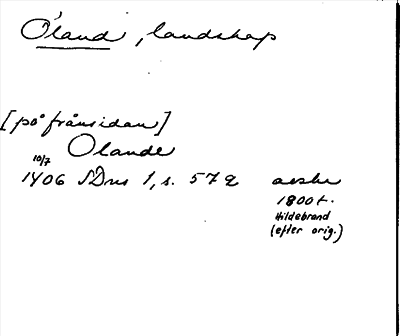 Öland, landskap
[på frånsidan]
Olande
10/7
1406 SDns 1, s. 572 avskr
1800 t.
Hildebrand
(efter orig.)